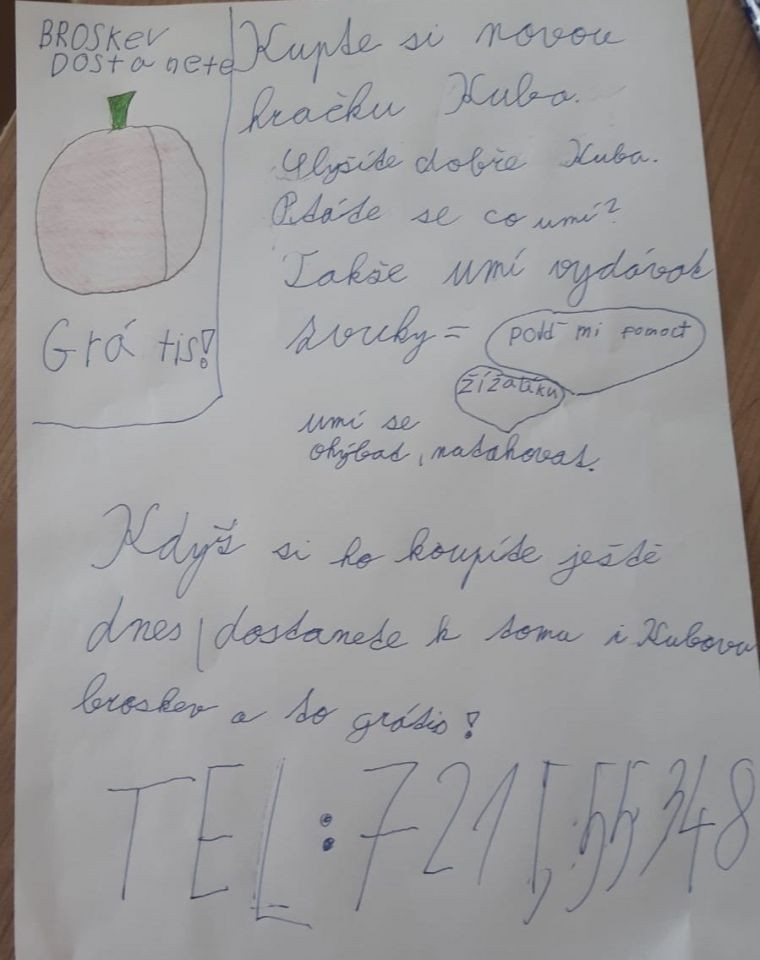 BROSKEV
DOSTANETE
Grátis!
Kupte si novou
hračku Kuba.
Slyšíte dobře Kuba.
Ptáte se co umí?
Takše umí vydávat
zvuky =
pojď mi pomoct
žížaláku
umí se
ohýbat, natahovat.
Když si ho koupíte ještě
dnes, dostanete k tomu i Kubovu
broskev a to grátis!
TEL: 721 555 348